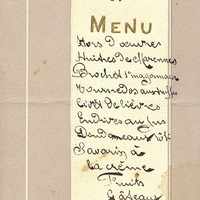 MENU
Hors d'oeuvres
Huîtres de Marennes
Brochet s. mayonnaise
Tournedos aux truffes
Civet de lièvres
Endives au jus
Dindonneaux rôti
Savarin à
la crème
Fruits
Gâteaux